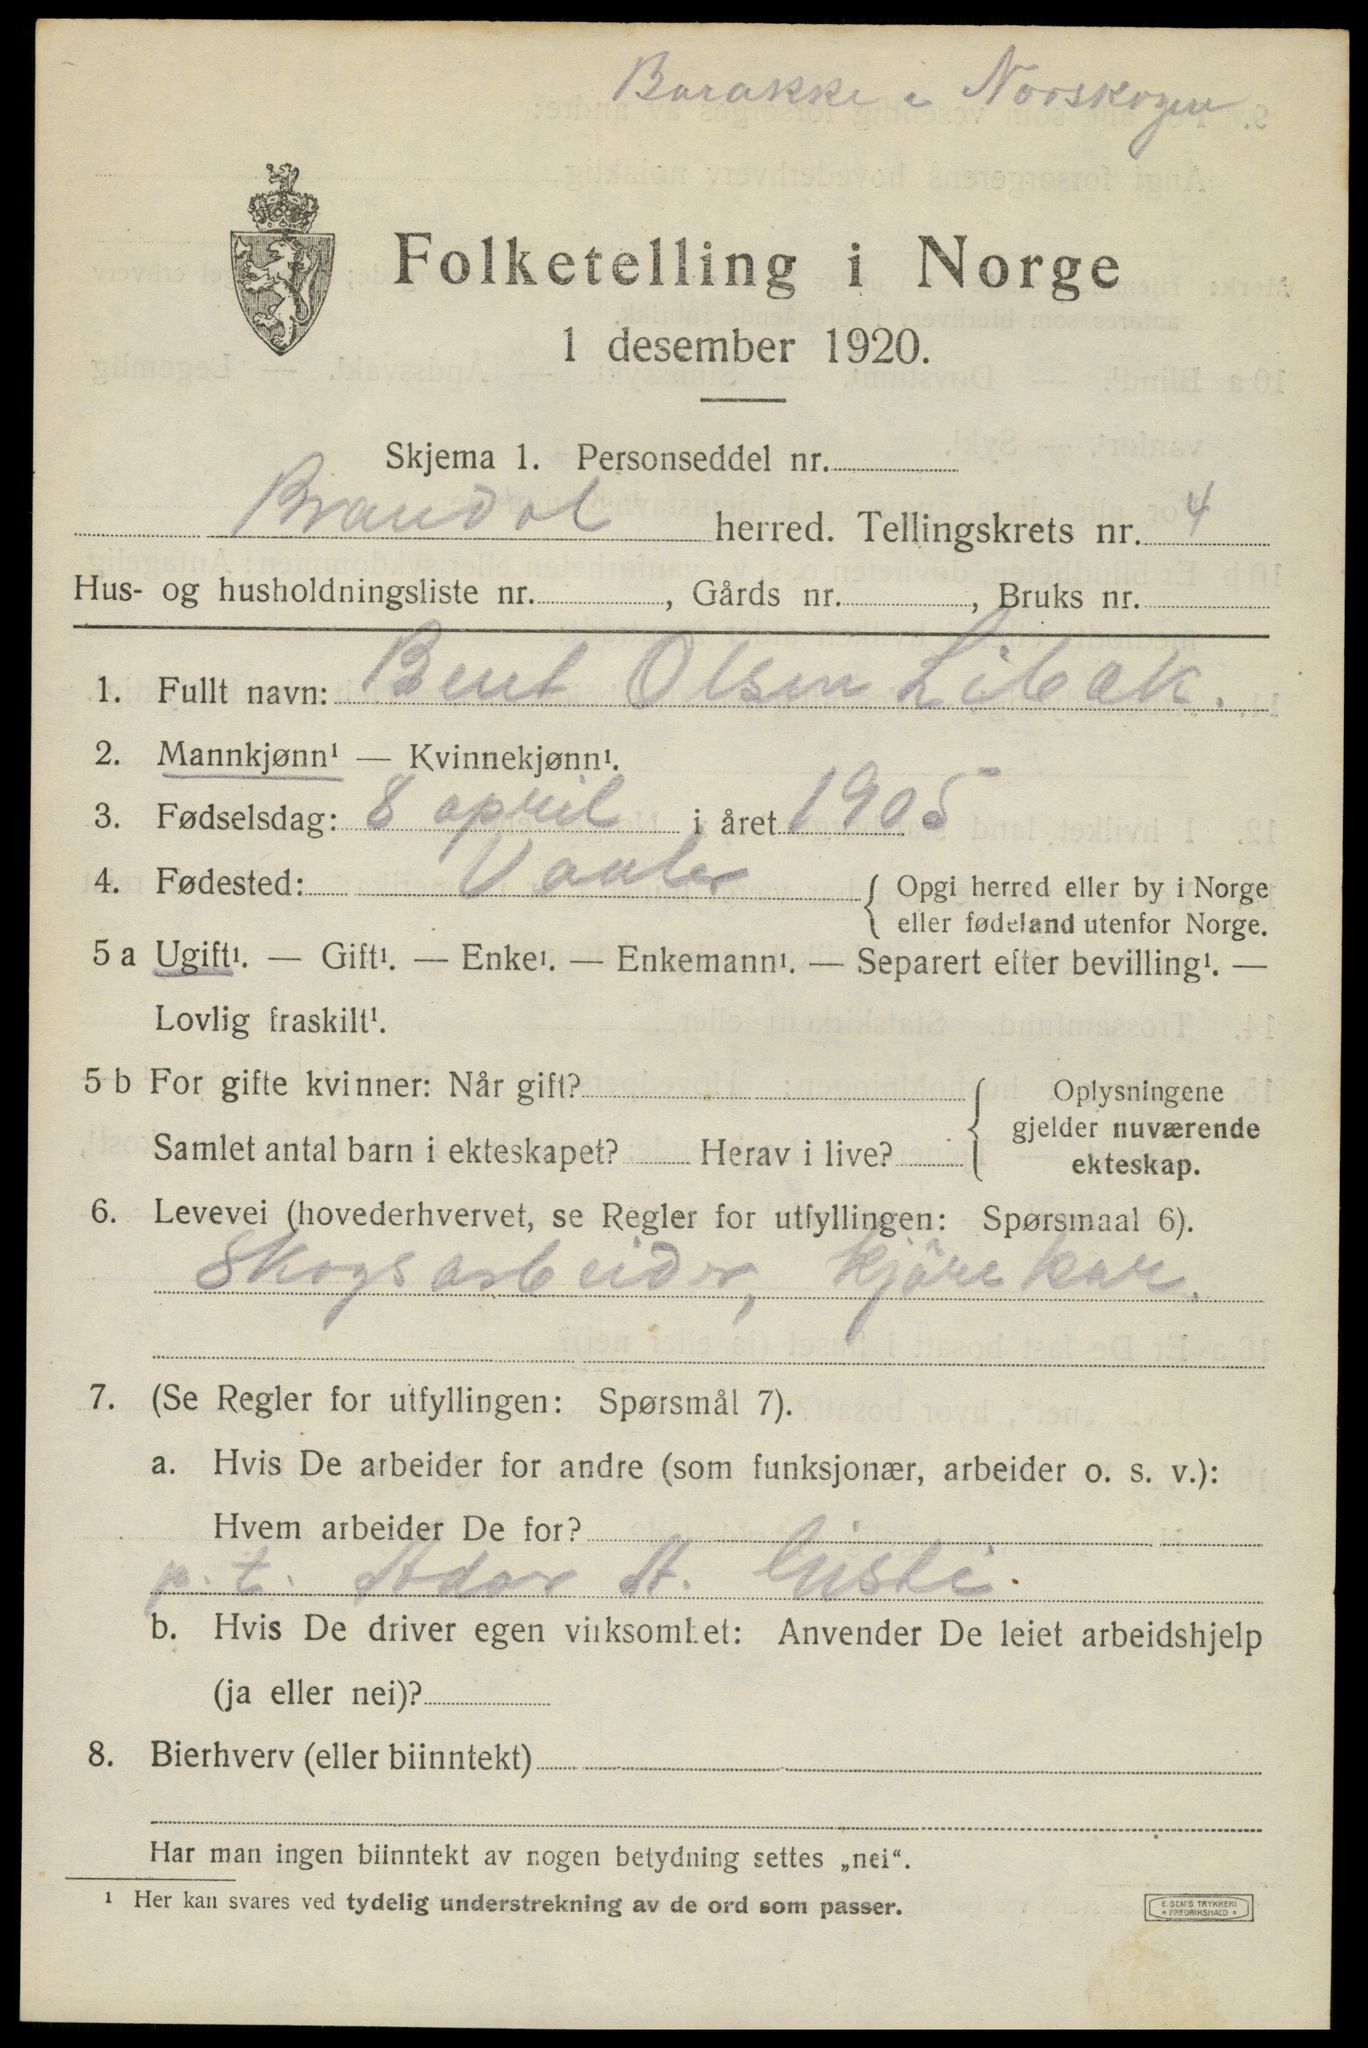 Barakke i Norskogen
Folketelling i Norge
1 desember 1920.
Skjema 1. Personseddel nr.
Brandval herred. Tellingskrets nr. 4
Hus- og husholdningsliste nr. , Gårds nr. , Bruks nr.
1. Fullt navn: Bent Olsen Libak.
2. Mannkjønn¹ — Kvinnekjønn¹.
3. Fødselsdag: 8 april i året 1905
4. Fødested: Vaaler { Opgi herred eller by i Norge
eller fødeland utenfor Norge.
5 a Ugift¹. — Gift¹. — Enke¹. — Enkemann¹. — Separert efter bevilling¹. —
Lovlig fraskilt¹.
5 b For gifte kvinner: Når gift? { Oplysningene
gjelder nuværende
Samlet antal barn i ekteskapet? Herav i live?
ekteskap.
6. Levevei (hovederhvervet, se Regler for utfyllingen: Spørsmaal 6).
Skogsarbeider, kjørekar.
7. (Se Regler for utfyllingen: Spørsmål 7).
a. Hvis De arbeider for andre (som funksjonær, arbeider o. s. v.):
Hvem arbeider De for?
p. t. A.
b. Hvis De driver egen virksomhet: Anvender De leiet arbeidshjelp
(ja eller nei)?
8. Bierhverv (eller biinntekt)
Har man ingen biinntekt av nogen betydning settes „nei“.
¹ Her kan svares ved tydelig understrekning av de ord som passer.
E. SEM'S TRYKKERI
* FREDRIKSHALD *